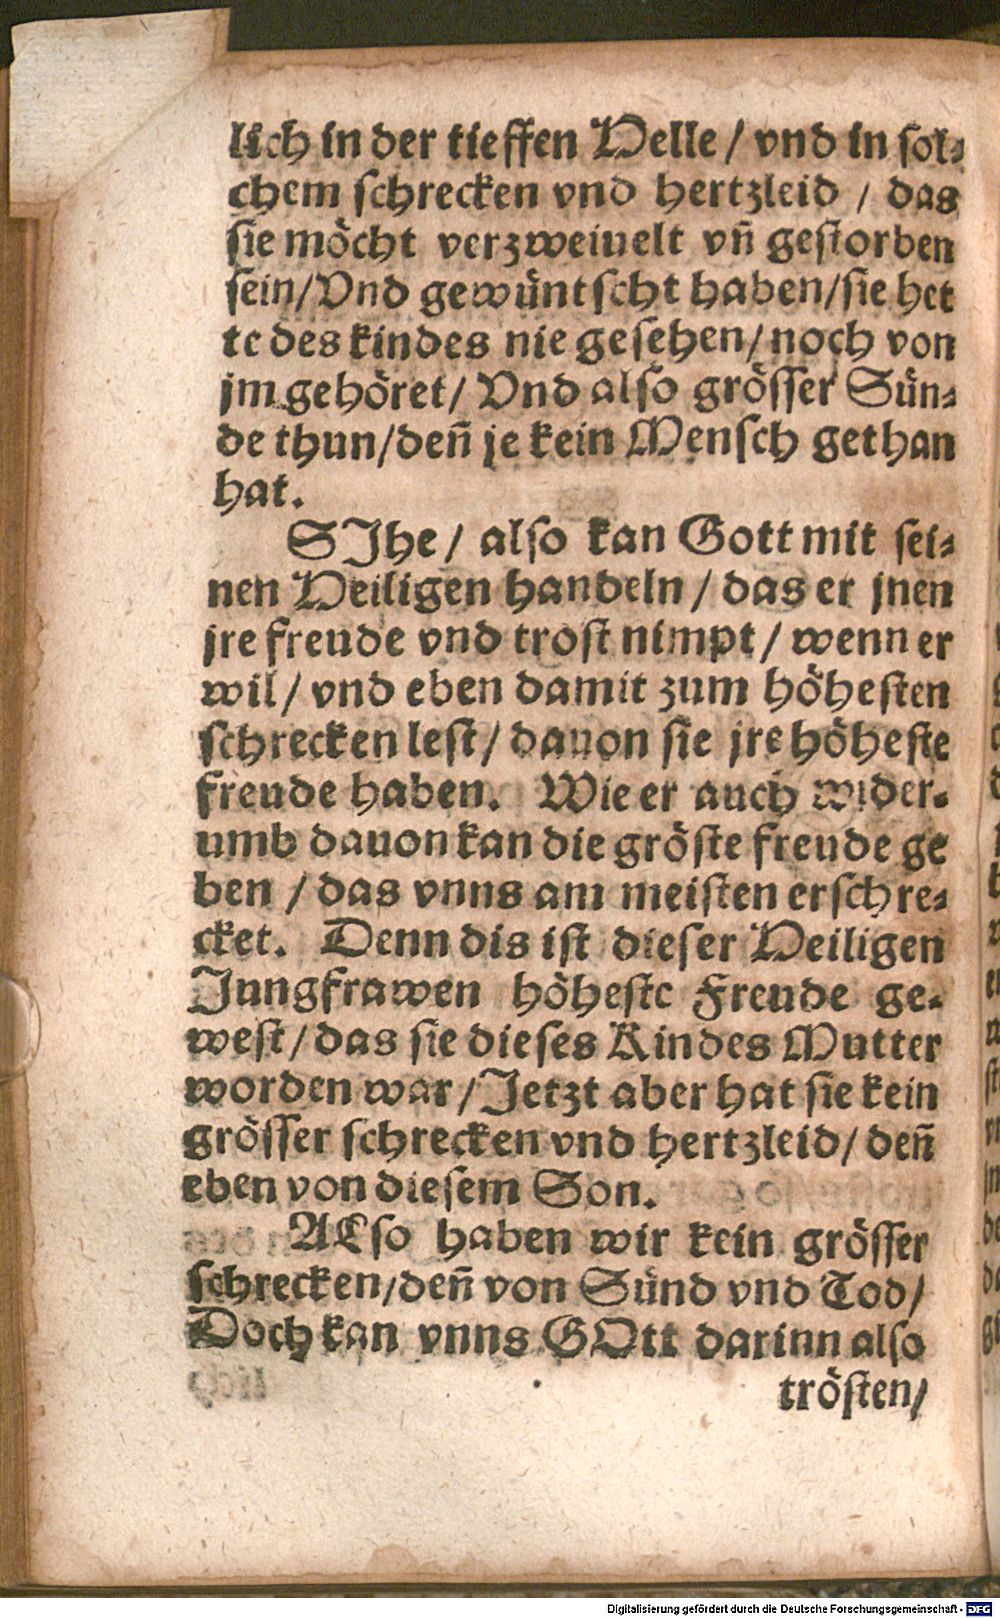 lich in der tieffen Helle / vnd in sol-
chem schrecken vnd hertzleid / das
sie möcht verzweiuelt vn̄ gestorben
sein/Vnd gewüntscht haben/sie het
te des kindes nie gesehen/noch von
jm gehöret/ Vnd also grösser Sün-
de thun/den̄ je kein Mensch gethan
hat.
SJhe / also kan Gott mit sei-
nen Heiligen handeln / das er jnen
jre freude vnd trost nimpt / wenn er
wil / vnd eben damit zum höhesten
schrecken lest/ dauon sie jre höheste
freude haben. Wie er auch wider-
umb dauon kan die gröste freude ge
ben / das vnns am meisten erschre-
cket. Denn dis ist dieser Heiligen
Jungfrawen höheste Freude ge-
west/ das sie dieses Kindes Mutter
worden war/Jetzt aber hat sie kein
grösser schrecken vnd hertzleid/ den̄
eben von diesem Son.
ALso haben wir kein grösser
schrecken/den̄ von Sünd vnd Tod/
Doch kan vnns GOtt darinn also
trösten/
Digitalisierung gefördert durch die Deutsche Forschungsgemeinschaft - DFG